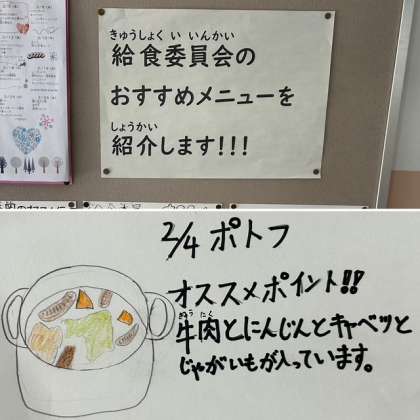 きゅうしょく い いんかい
給食委員会の
おすすめメニューを
しょうかい
紹介します!!!
2/4 ポトフ
オススメポイント!!
ぎゅう にく
牛肉とにんじんとキャベツと
じゃがいもが入っています。